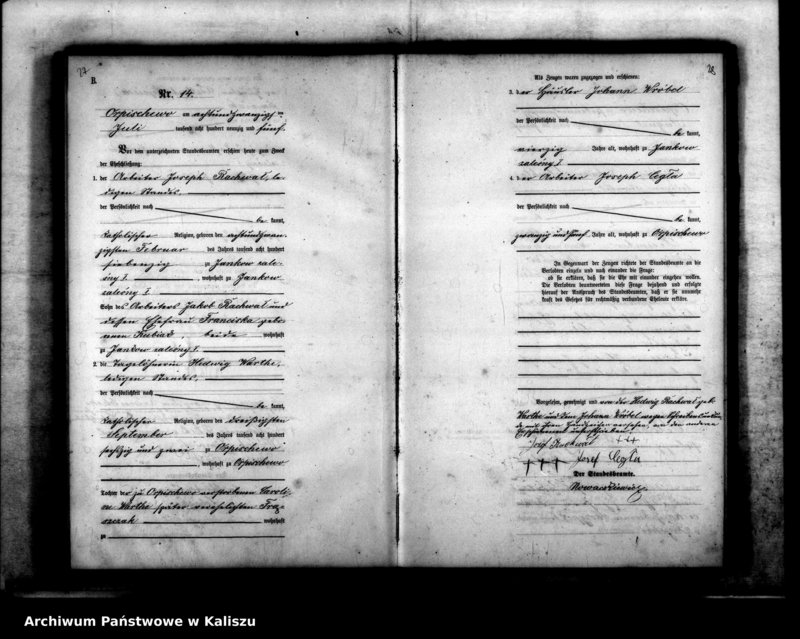 27
B.
Nr. 14.
Ospischewo am achtundzwanzigsten
Juli tausend acht hundert neunzig und fünf.
Vor dem unterzeichneten Standesbeamten erschien heute zum Zweck
der Eheschließung:
1. der Arbeiter Joseph Rachwal, le-
digen Standes
der Persönlichkeit nach
be kannt,
katholischer Religion, geboren den achtundzwan-
zigsten Februar des Jahres tausend acht hundert
siebenzig zu Jankow zale-
śny I. , wohnhaft zu Jankow
zaleśny I.
Sohn des Arbeiters Jakob Rachwal und
dessen Ehefrau Franciska gebo-
renen Kubiak beide wohnhaft
zu Jankow zaleśny I.
2. die Tagelöhnerin Hedwig Warthe,
ledigen Standes,
der Persönlichkeit nach
be kannt,
katholischer Religion, geboren den dreißigsten
September des Jahres tausend acht hundert
sechszig und zwei zu Ospischewo
, wohnhaft zu Ospischewo
Tochter der zu Ospischewo verstorbenen Caroli-
ne Warthe später verehelichten
wohnhaft
zu
28
Als Zeugen waren zugezogen und erschienen:
3. der Häusler Johann Wróbel
der Persönlichkeit nach
be kannt,
vierzig Jahre alt, wohnhaft zu Jankow
zaleśny I.
4. der Arbeiter Joseph Cegła
der Persönlichkeit nach
be kannt,
zwanzig und fünf Jahre alt, wohnhaft zu Ospischewo
In Gegenwart der Zeugen richtete der Standesbeamte an die
Verlobten einzeln und nach einander die Frage:
ob sie erklären, daß sie die Ehe mit einander eingehen wollen.
Die Verlobten beantworteten diese Frage bejahend und erfolgte
hierauf der Ausspruch des Standesbeamten, daß er sie nunmehr
kraft des Gesetzes für rechtmäßig verbundene Eheleute erkläre.
Vorgelesen, genehmigt und von der Hedwig Rachwal geb.
Warthe und dem Johann Wróbel wegen
mit ihren Handzeichen versehen, von den anderen
unterschrieben.
Josef Rachwal +++
+++ Josef Cegła
Der Standesbeamte.
Archiwum Państwowe w Kaliszu